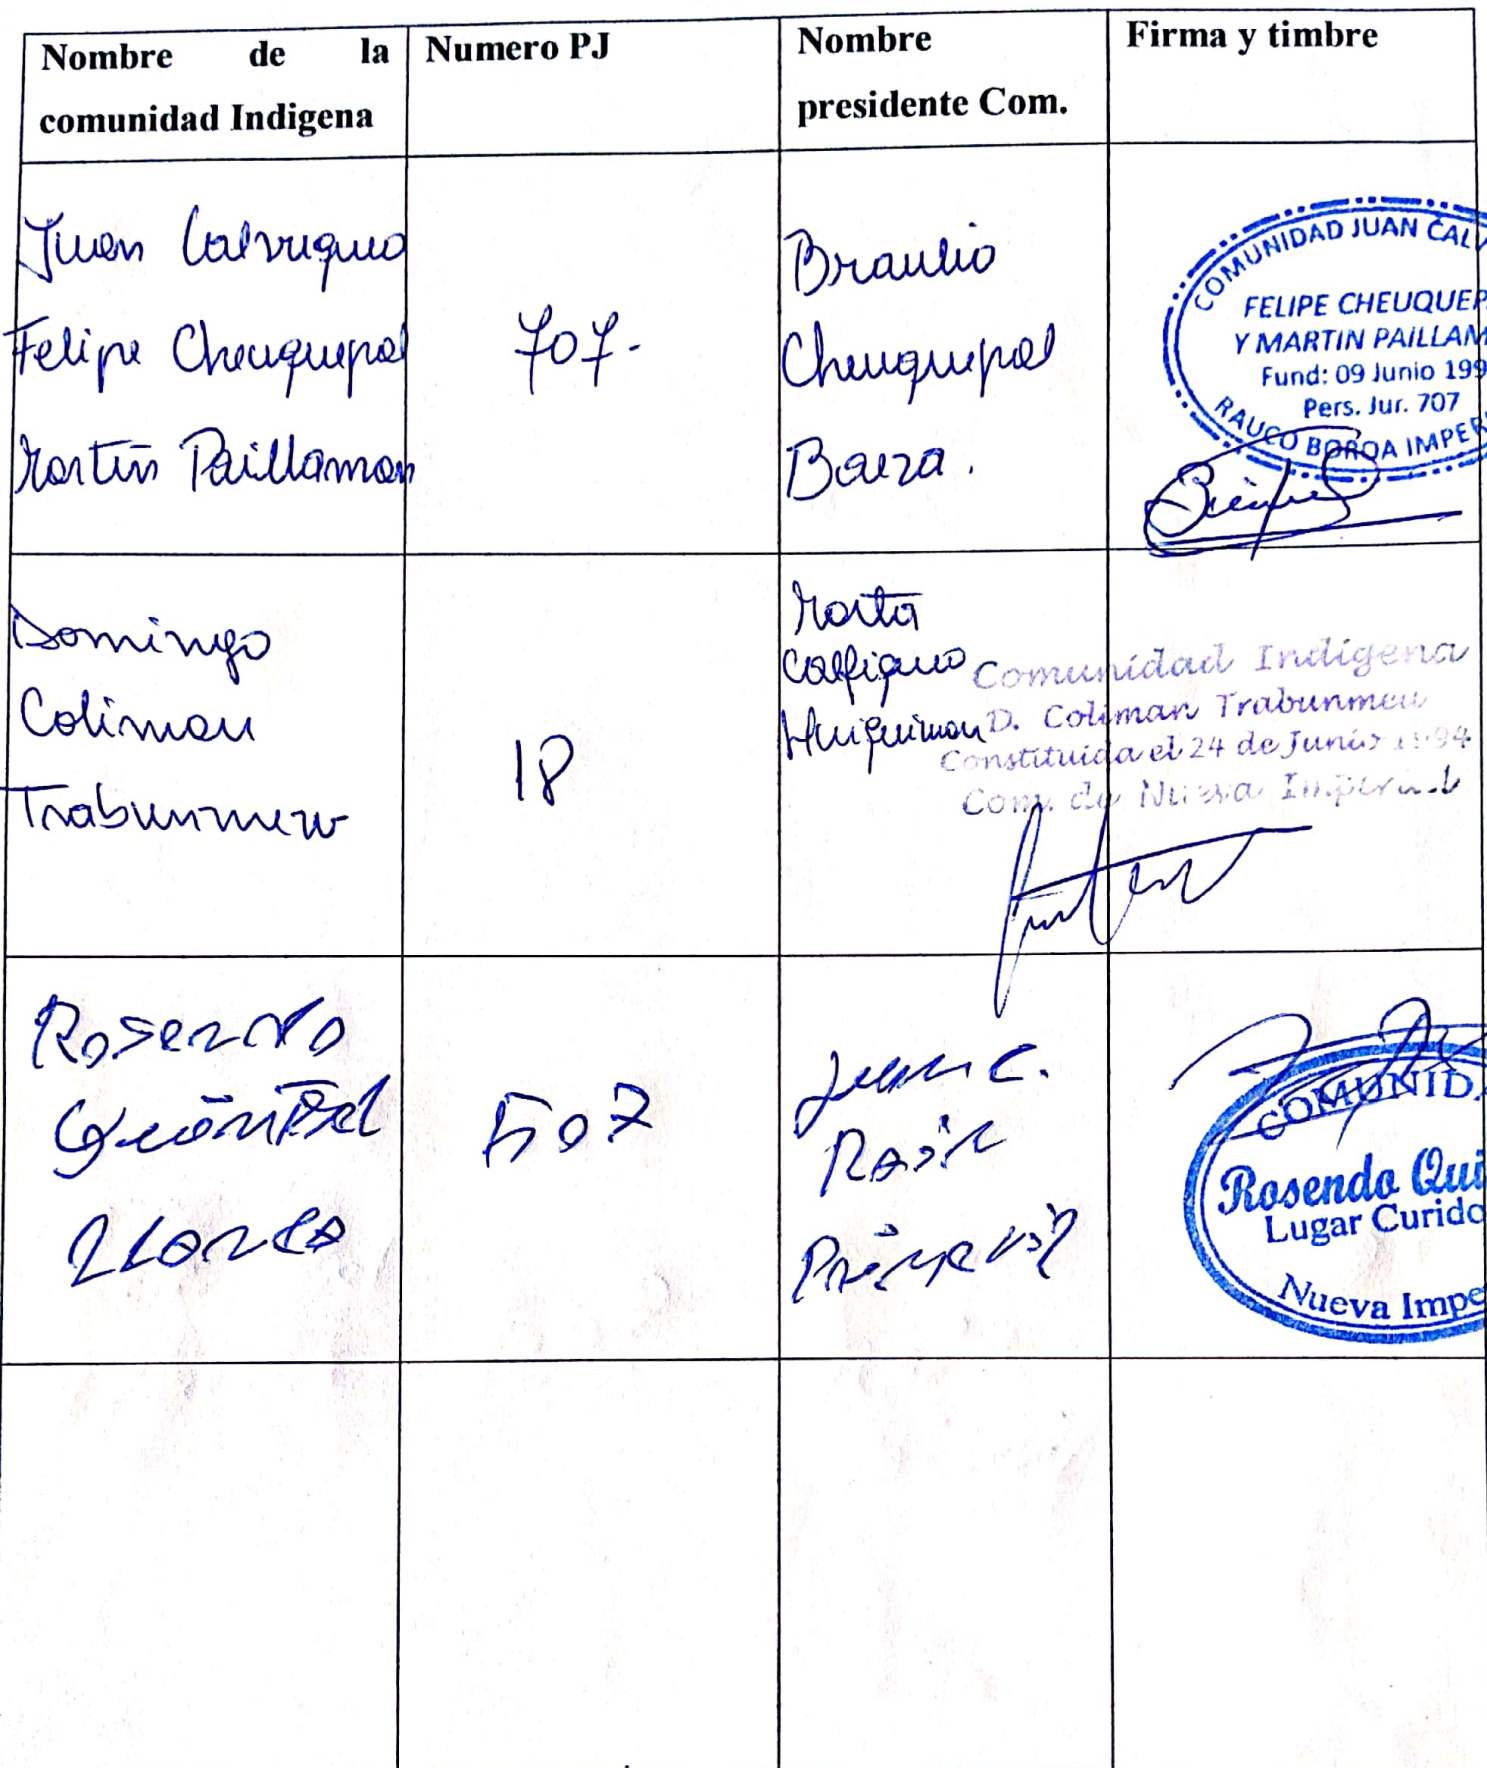 Nombre de la
comunidad Indigena
Numero PJ
Nombre
presidente Com.
Firma y timbre
Juan Calvuqueo
Felipe Cheuquepal
Martin Paillaman
707.
Braulio
Cheuquepal
Baeza.
COMUNIDAD JUAN CAL
FELIPE CHEUQUEP
Y MARTIN PAILLAM
Fund: 09 Junio 199
Pers. Jur. 707
RAUCO BOROA IMPER
Domingo
Coliman
Trabunmeu
18
Marta
Calfiqueo
Huiquiman
Comunidad Indígena
D. Coliman Trabunmeu
Constituida el 24 de Junio 1994
Com. de Nueva Imperial
Rosendo
507
Juan C.
COMUNID
Rosendo Qui
Lugar Curido
Nueva Impe